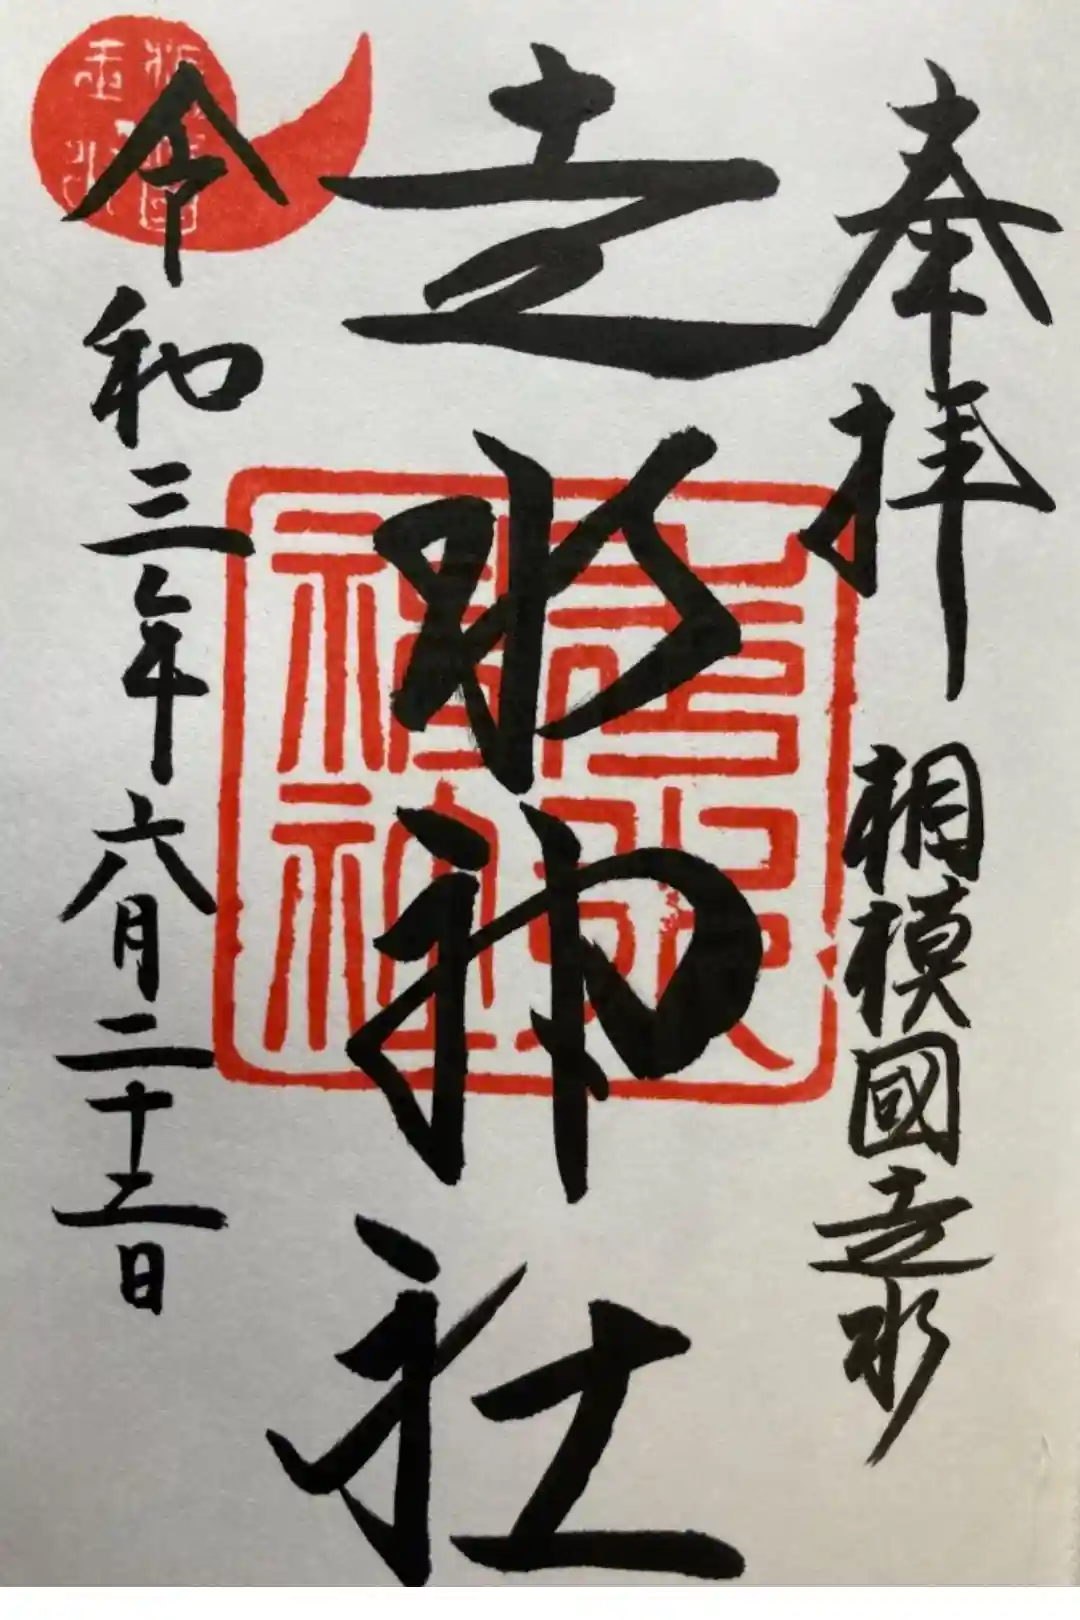 奉拝
相模國走水
走水神社
令和三年六月二十二日